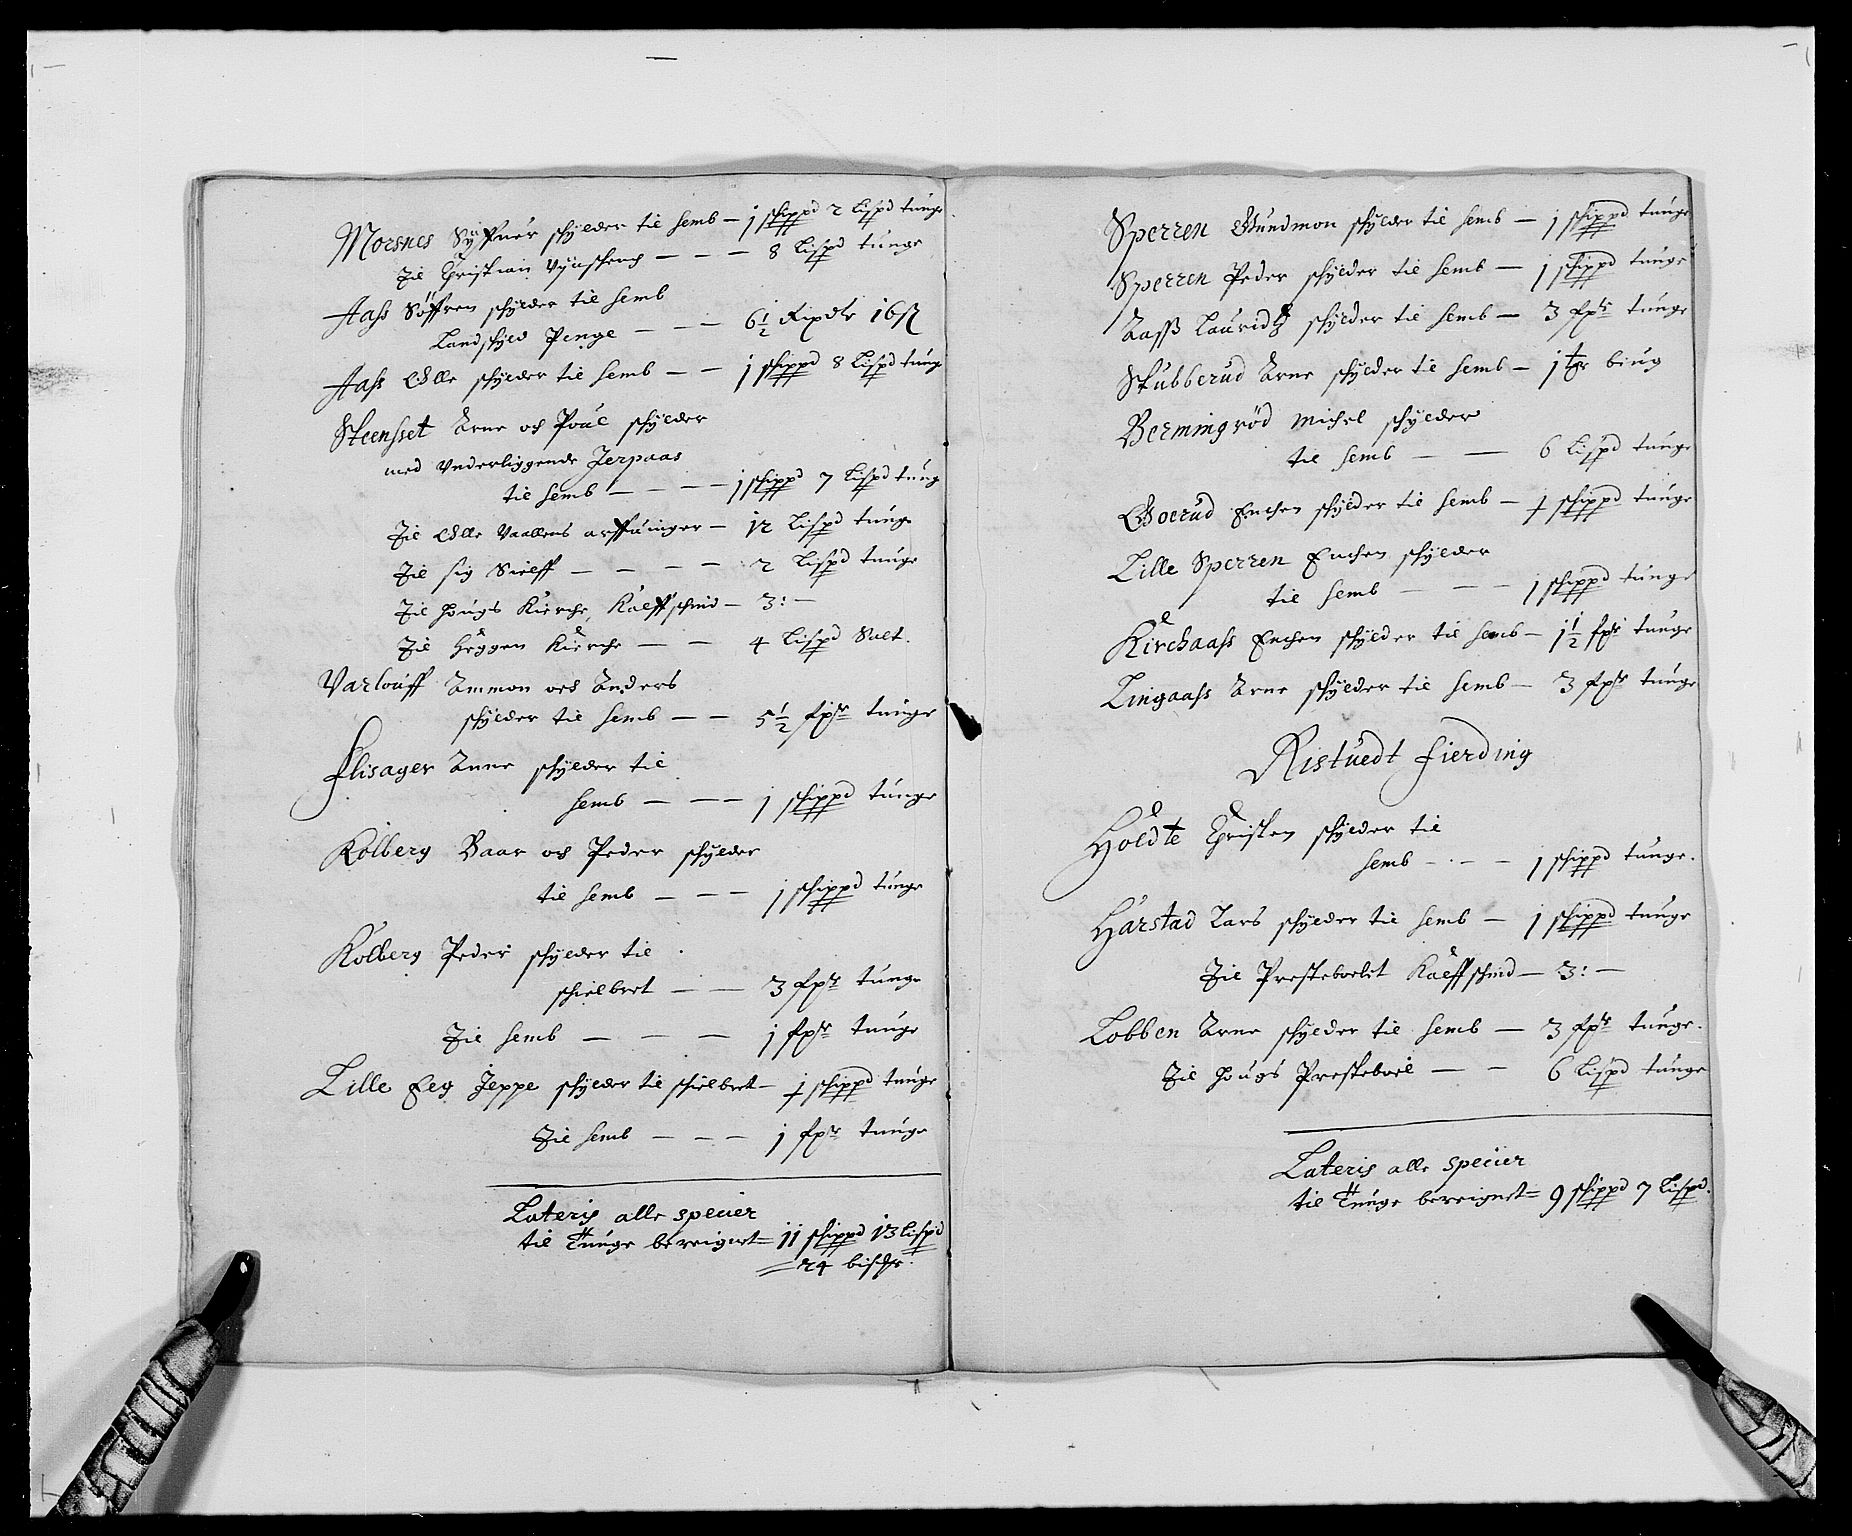 Morsnes Syffuer schylder til Semb – 1 schippd 2 Lispd tunge
Til Christian – – – 8 Lispd tunge
Aass Søffren schylder til Semb
Landschyld Penge – – – 6½ Rixdlr 16 s
Aass Olle schylder til Semb – – 1 schippd 8 Lispd tunge
Steensset Arne och Poul schylder
med Vnderliggende Jerpaas
til Semb – – – – 1 schippd 7 Lispd tung
Til Olle Vaallens arffuinger – 12 Lispd tunge
Til sig Sielff – – – – 2 Lispd tunge
Til Hougs Kirche, Kalffschind – 3: –
Til Heggen Kirche – – 4 Lispd Salt.
Varlouff Ammon och Anders
schylder til Semb – – 5½ fpsr tunge
Flisager Anne schylder til
Semb – – – 1 schippd tunge
Kolberg Baar och Peder schylder
til Semb – – – 1 schippd tunge
Kolberg Peder schylder til
schielbret – – 3 fpsr tunge
Til Semb – – – 1 fpsr tunge
Lille Eeg Jeppe schylder til schielbret – 1 schippd tunge
Til Semb – – – 1 fpsr tunge
Lateris alle specier
til Tunge bereignet = 11 schippd 13 Lispd
= 24 bisdr.
Sperren Gundmon schylder til Semb – 1 schippd tunge
Sperren Peder schylder til Semb – 1 schippd tunge
Aass Lauridtz schylder til Semb – 3 fpsr tunge
Stubberud Arne schylder til Semb – 1 tr biug
Bermingrød Michel schylder
til Semb – – 6 Lispd tunge
Goerud Enchen schylder til Semb – 1 schippd tunge
Lille Sperren Enchen schylder
til Semb – – – 1 schippd tunge
Kirchaass Enchen schylder til Semb – 1½ fpsr tunge
Lingaass Arne schylder til Semb – 3 fpsr tunge
Ristuedt Fierding
Holdte Christen schylder til
Semb – – – 1 schippd tunge.
Harstad Lars schylder til Semb – 1 schippd tunge
Til Presteboelet Kalffschind – 3: –
Lobben Arne schylder til Semb – 3 fpsr tunge.
Til Hougs Presteboel – – 6 Lispd tunge
Lateris alle specier
til Tunge bereignet = 9 schippd 7 Lispd.